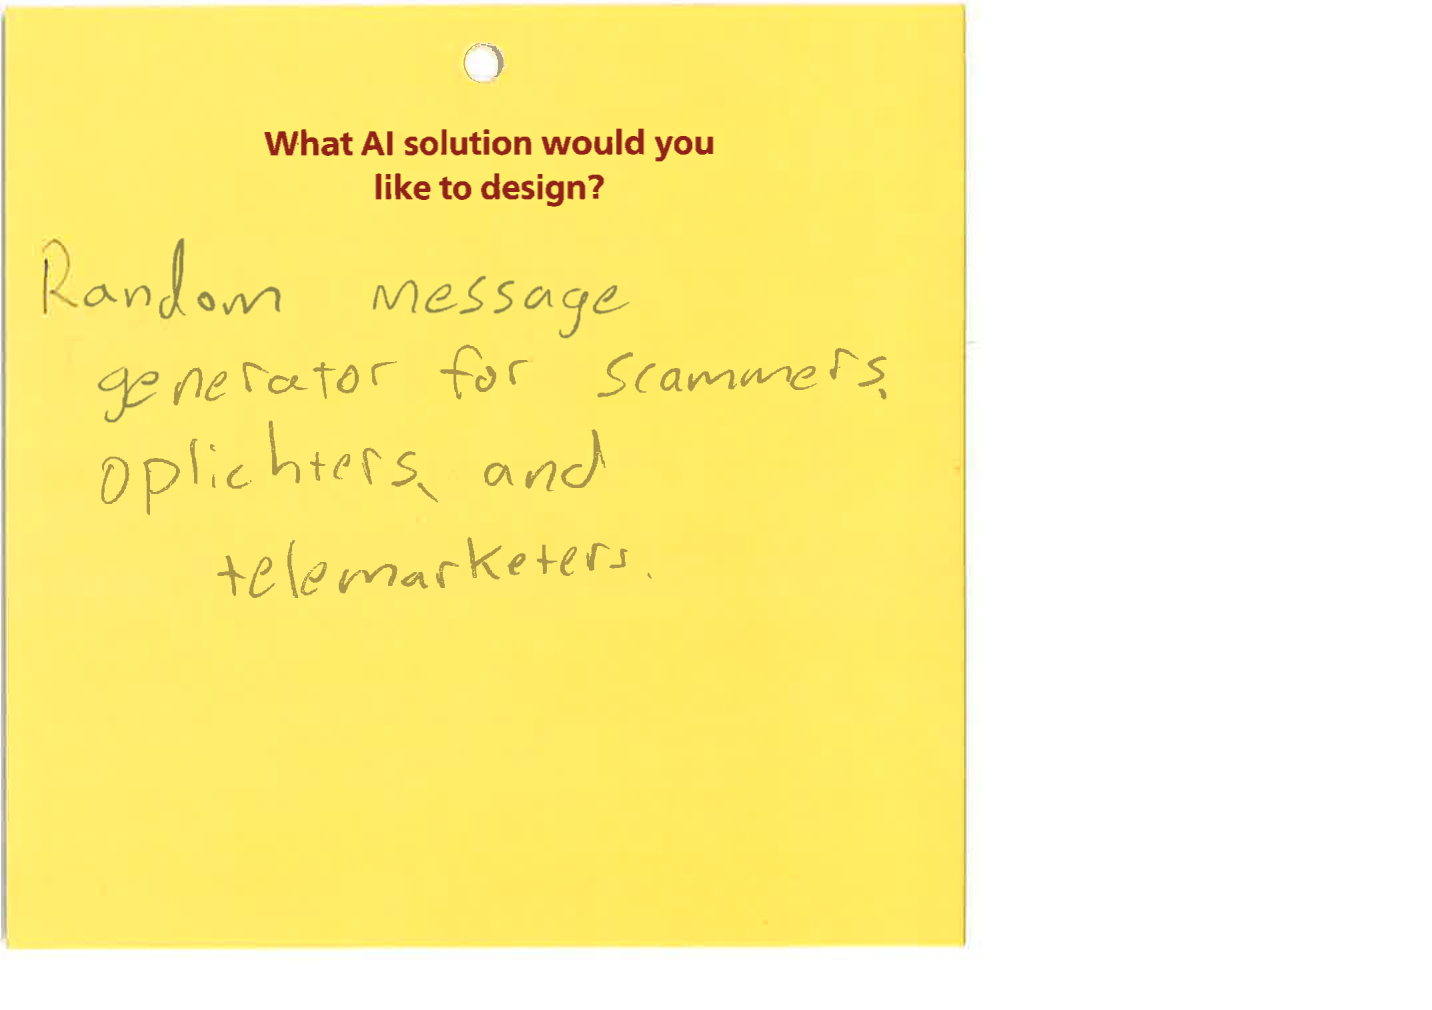 What AI solution would you
like to design?
Random message
generator for scammers,
oplichters, and
telemarketers.